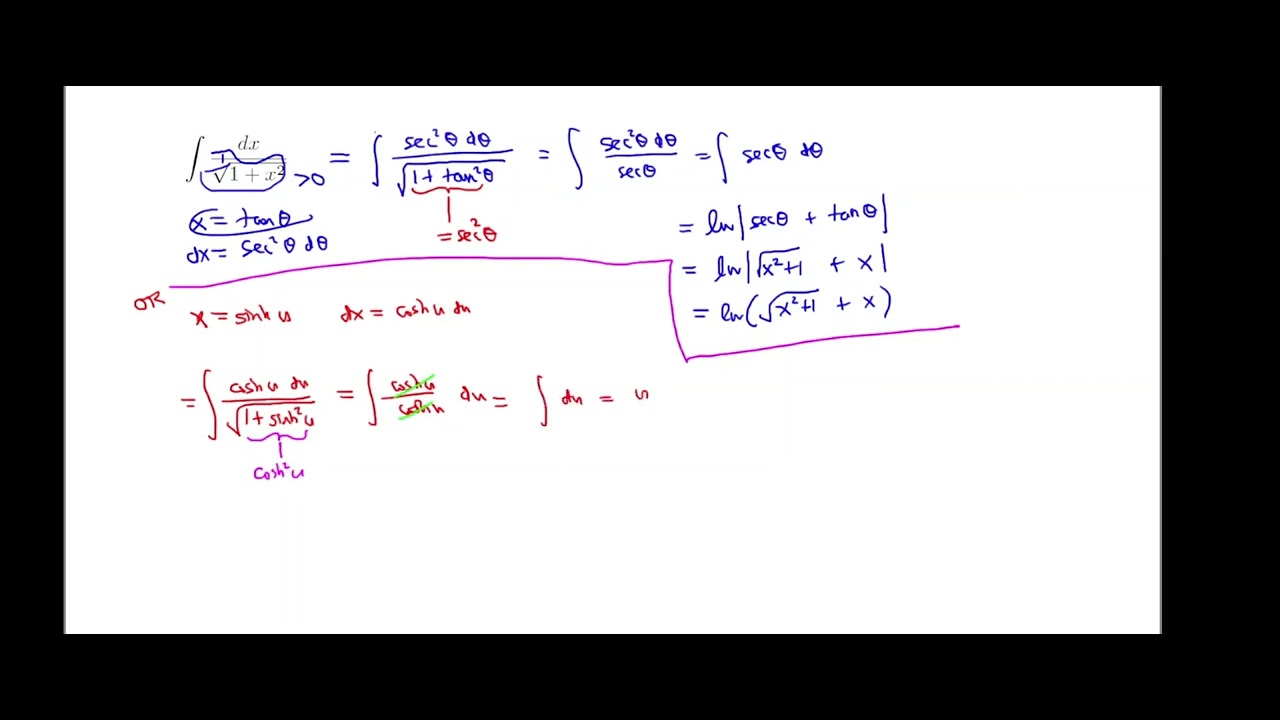 ∫ dx/√(1 + x²) > 0 = ∫ sec²θ dθ/√(1 + tan²θ) = ∫ sec²θ dθ/secθ = ∫ secθ dθ
x = tanθ
dx = sec²θ dθ
= sec²θ
= ln|secθ + tanθ|
= ln|√(x²+1) + x|
= ln(√(x²+1) + x)
OR
x = sinh u dx = cosh u du
= ∫ cosh u du/√(1 + sinh²u) = ∫ cosh u/cosh u du = ∫ du = u
cosh²u